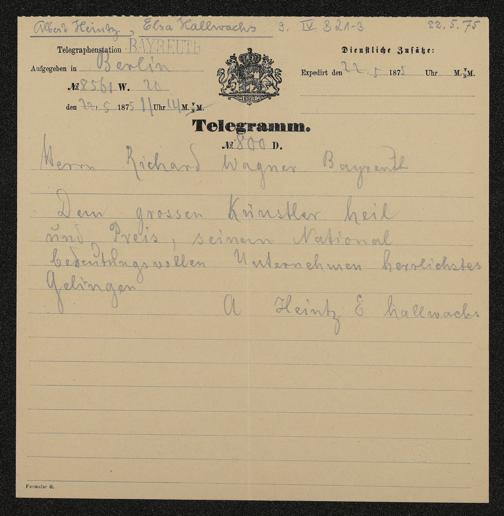 Albert Heintz, Elsa Hallwachs 9. IV B 21-3 22.5.75
Telegraphenstation BAYREUTH
Dienstliche Zusätze:
Aufgegeben in Berlin
Expedirt den 22. 5 187 Uhr M. M.
№ 8561 W. 20
den 22. 5 1875 Uhr M. M.
Telegramm.
№ 800 D.
Herrn Richard Wagner Bayreuth
Dem grossen Künstler heil
und Preis, seinem National
bedeutungsvollen Unternehmen herrlichstes
Gelingen
A Heintz E hallwachs
Formular